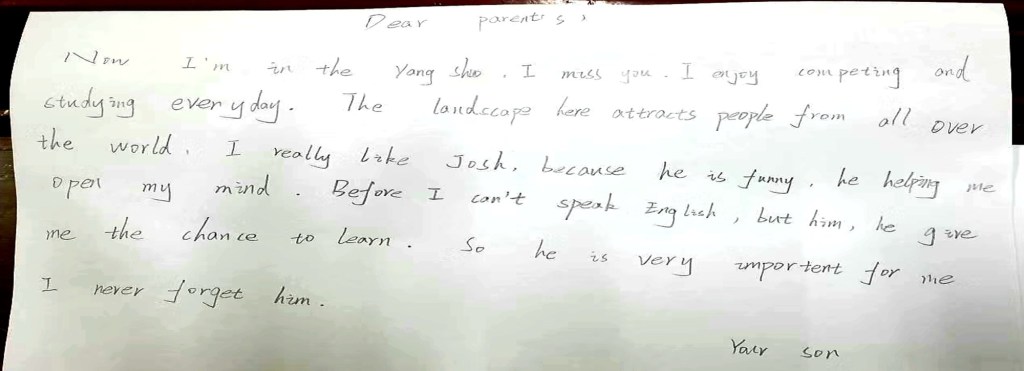 Dear parents,
Now I'm in the Yang shuo. I miss you. I enjoy competing and
studying everyday. The landscape here attracts people from all over
the world. I really like Josh, because he is funny, he helping me
open my mind. Before I can't speak English, but him, he give
me the chance to learn. So he is very importent for me
I never forget him.
Your son